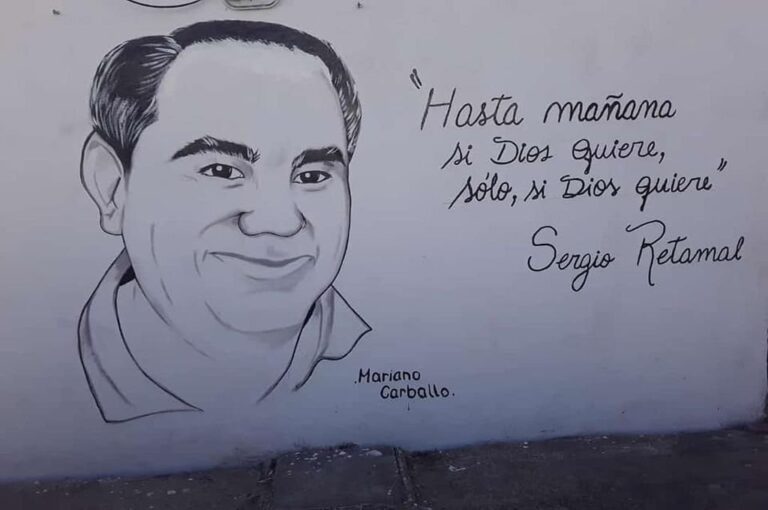 "Hasta mañana
si Dios quiere,
sólo, si Dios quiere"
Sergio Retamal
.Mariano
Carballo.